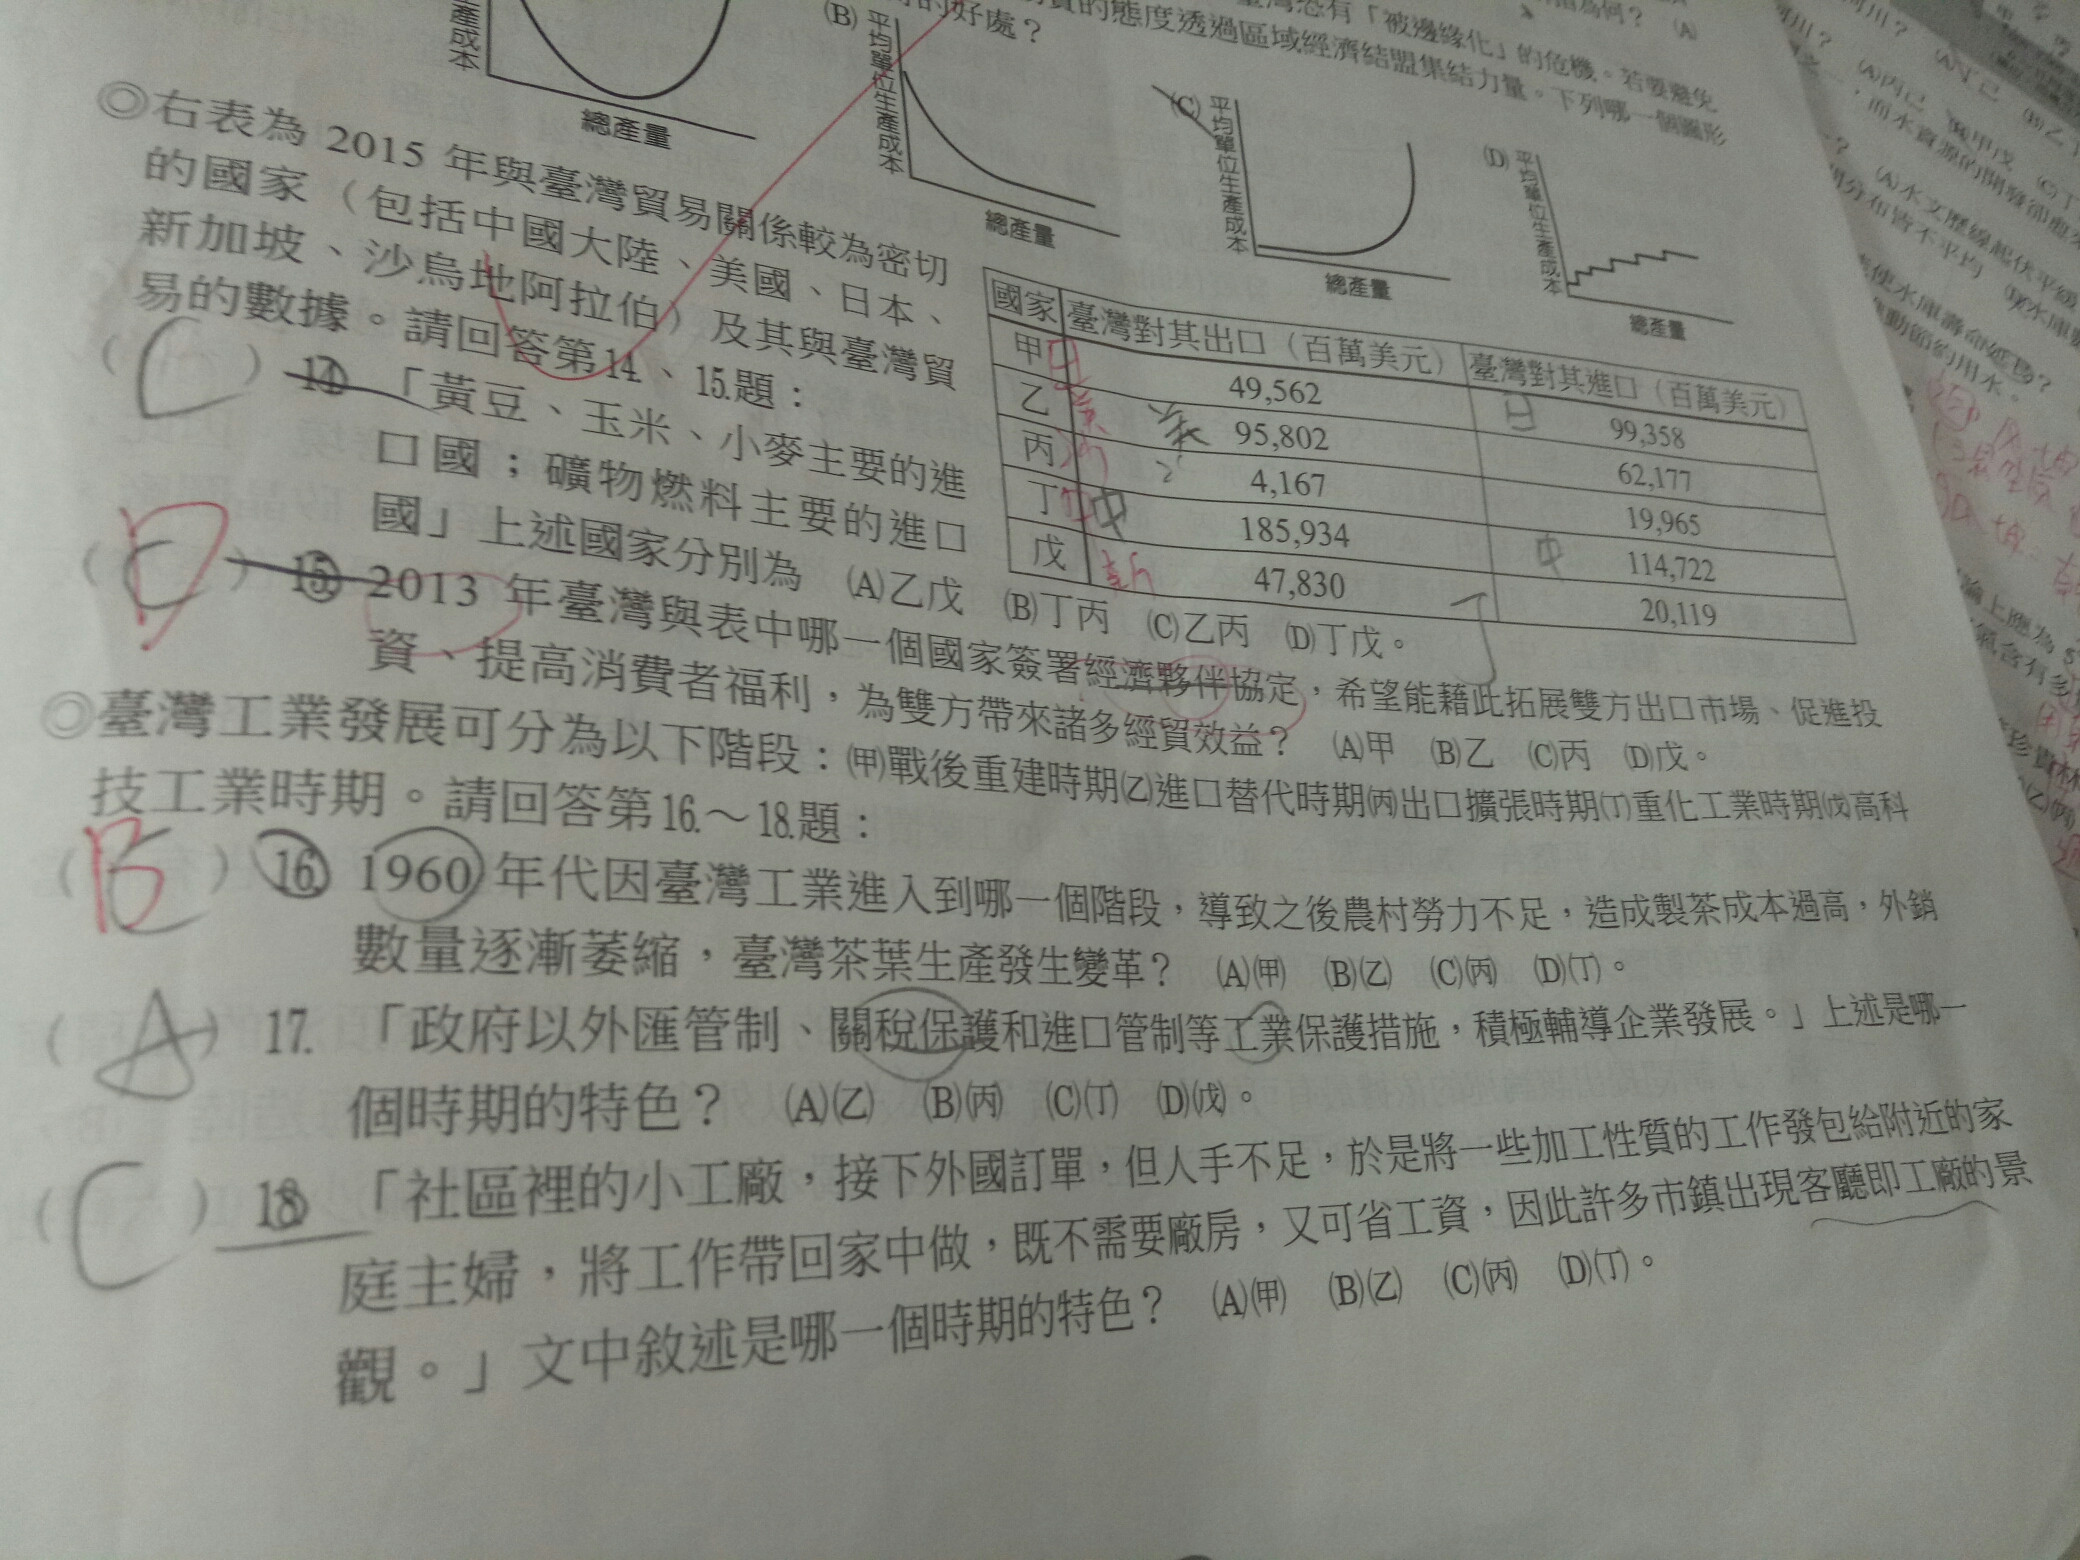 臺灣恐有「被邊緣化」的危機。若要避免
的態度透過區域經濟結盟集結力量。下列哪一個圖形
的好處？
產成本
總產量
(B)
平均單位生產成本
總產量
(C)
平均單位生產成本
總產量
(D)
平均單位生產成本
總產量
◎右表為 2015 年與臺灣貿易關係較為密切
的國家（包括中國大陸、美國、日本、
新加坡、沙烏地阿拉伯）及其與臺灣貿
易的數據。請回答第14.、15.題：
國家 臺灣對其出口（百萬美元） 臺灣對其進口（百萬美元）
甲 日 49,562 日 99,358
乙 美 美 95,802 62,177
丙 沙 沙 4,167 19,965
丁 中 中 185,934 中 114,722
戊 新 47,830 20,119
( C ) 14. 「黃豆、玉米、小麥主要的進
口國；礦物燃料主要的進口
國」上述國家分別為 (A)乙戊 (B)丁丙 (C)乙丙 (D)丁戊。
( C D ) 15. 2013 年臺灣與表中哪一個國家簽署經濟夥伴協定，希望能藉此拓展雙方出口市場、促進投
資、提高消費者福利，為雙方帶來諸多經貿效益？ (A)甲 (B)乙 (C)丙 (D)戊。
◎臺灣工業發展可分為以下階段：㈙戰後重建時期㈚進口替代時期㈛出口擴張時期㈜重化工業時期㈝高科
技工業時期。請回答第16.～18.題：
( B ) 16. 1960 年代因臺灣工業進入到哪一個階段，導致之後農村勞力不足，造成製茶成本過高，外銷
數量逐漸萎縮，臺灣茶葉生產發生變革？ (A)(甲) (B)(乙) (C)(丙) (D)(丁)。
( A ) 17. 「政府以外匯管制、關稅保護和進口管制等工業保護措施，積極輔導企業發展。」上述是哪一
個時期的特色？ (A)(乙) (B)(丙) (C)(丁) (D)(戊)。
( C ) 18. 「社區裡的小工廠，接下外國訂單，但人手不足，於是將一些加工性質的工作發包給附近的家
庭主婦，將工作帶回家中做，既不需要廠房，又可省工資，因此許多市鎮出現客廳即工廠的景
觀。」文中敘述是哪一個時期的特色？ (A)(甲) (B)(乙) (C)(丙) (D)(丁)。